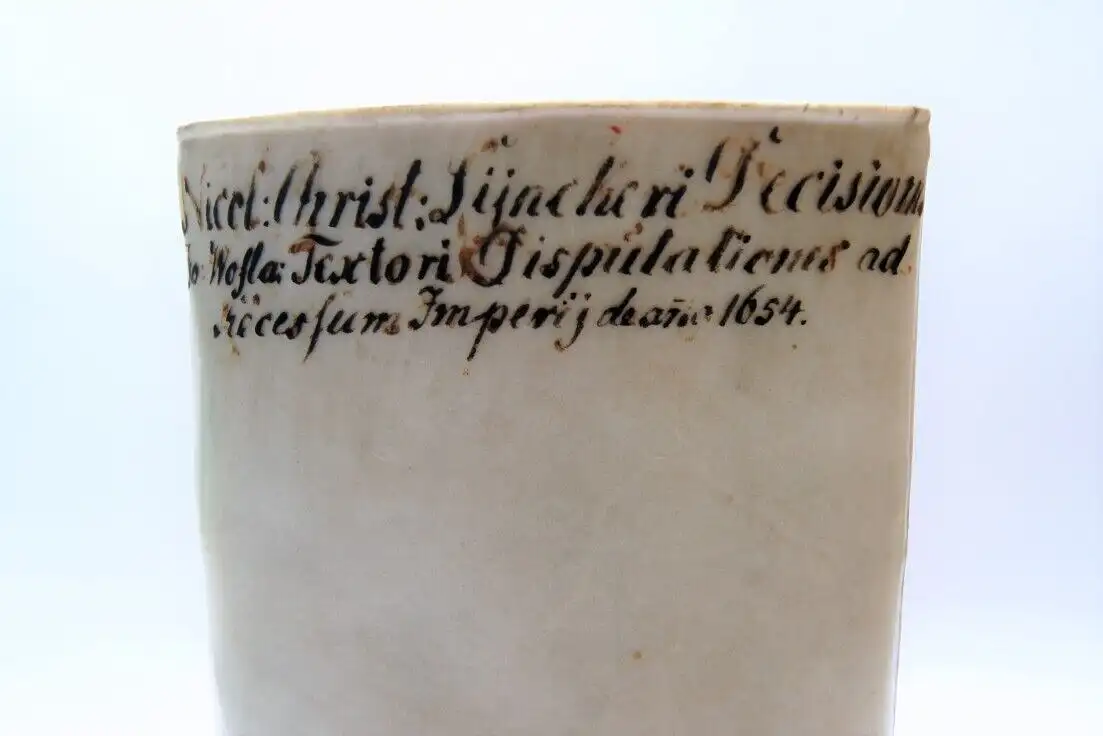 Nicol: Christ: Lÿncheri Decisiones
Jo: Wolfg: Textori Disputationes ad
Recessum Imperij de año 1654.